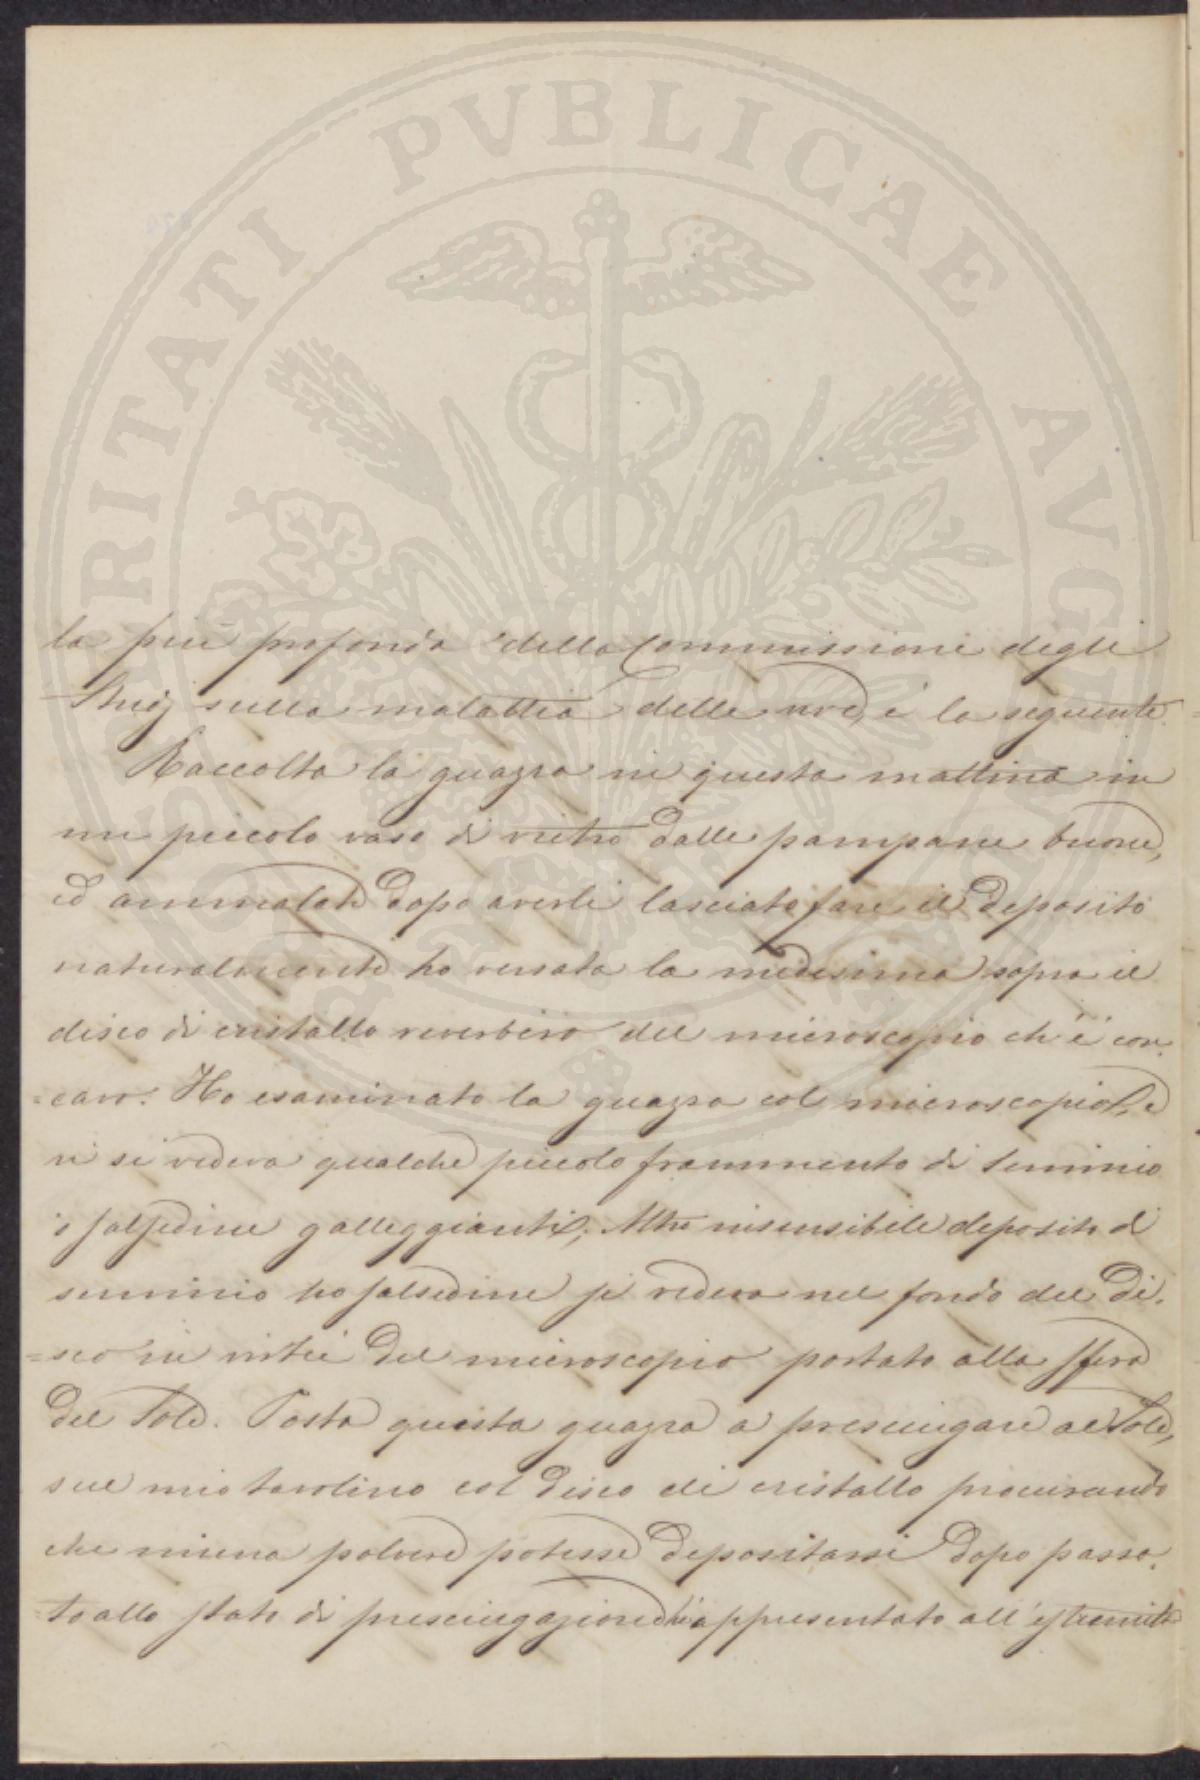 PROSPERITATI PUBLICAE AVGENDAE
la piu profonda della Commissione degli
Studj sulla malattia delle uve, è la seguente
Raccolta la guazza in questa mattina in
un piccolo vaso di vietro dalle pampane buone,
ed ammalate dopo averle lasciato fare il deposito
naturalmente ho versata la medesima sopra il
disco di cristallo reverbero del microscopio ch'è con=
=cavo. Ho esaminato la guazza col microscopio, e
vi si vedeva qualche piccolo frammento di seminio
o salsedine galleggianti; Altro insensibile deposito di
seminio ho salsedine si vedeva nel fondo del di=
=sco in del microscopio portato alla sfera
del Sole. Posta questa guazza a presciugare al Sole,
sul mio tavolino col disco di cristallo procurando
che niuna polvere potesse depositarsi dopo passa=
=to allo stato di presciugazione appresentato all'estremità